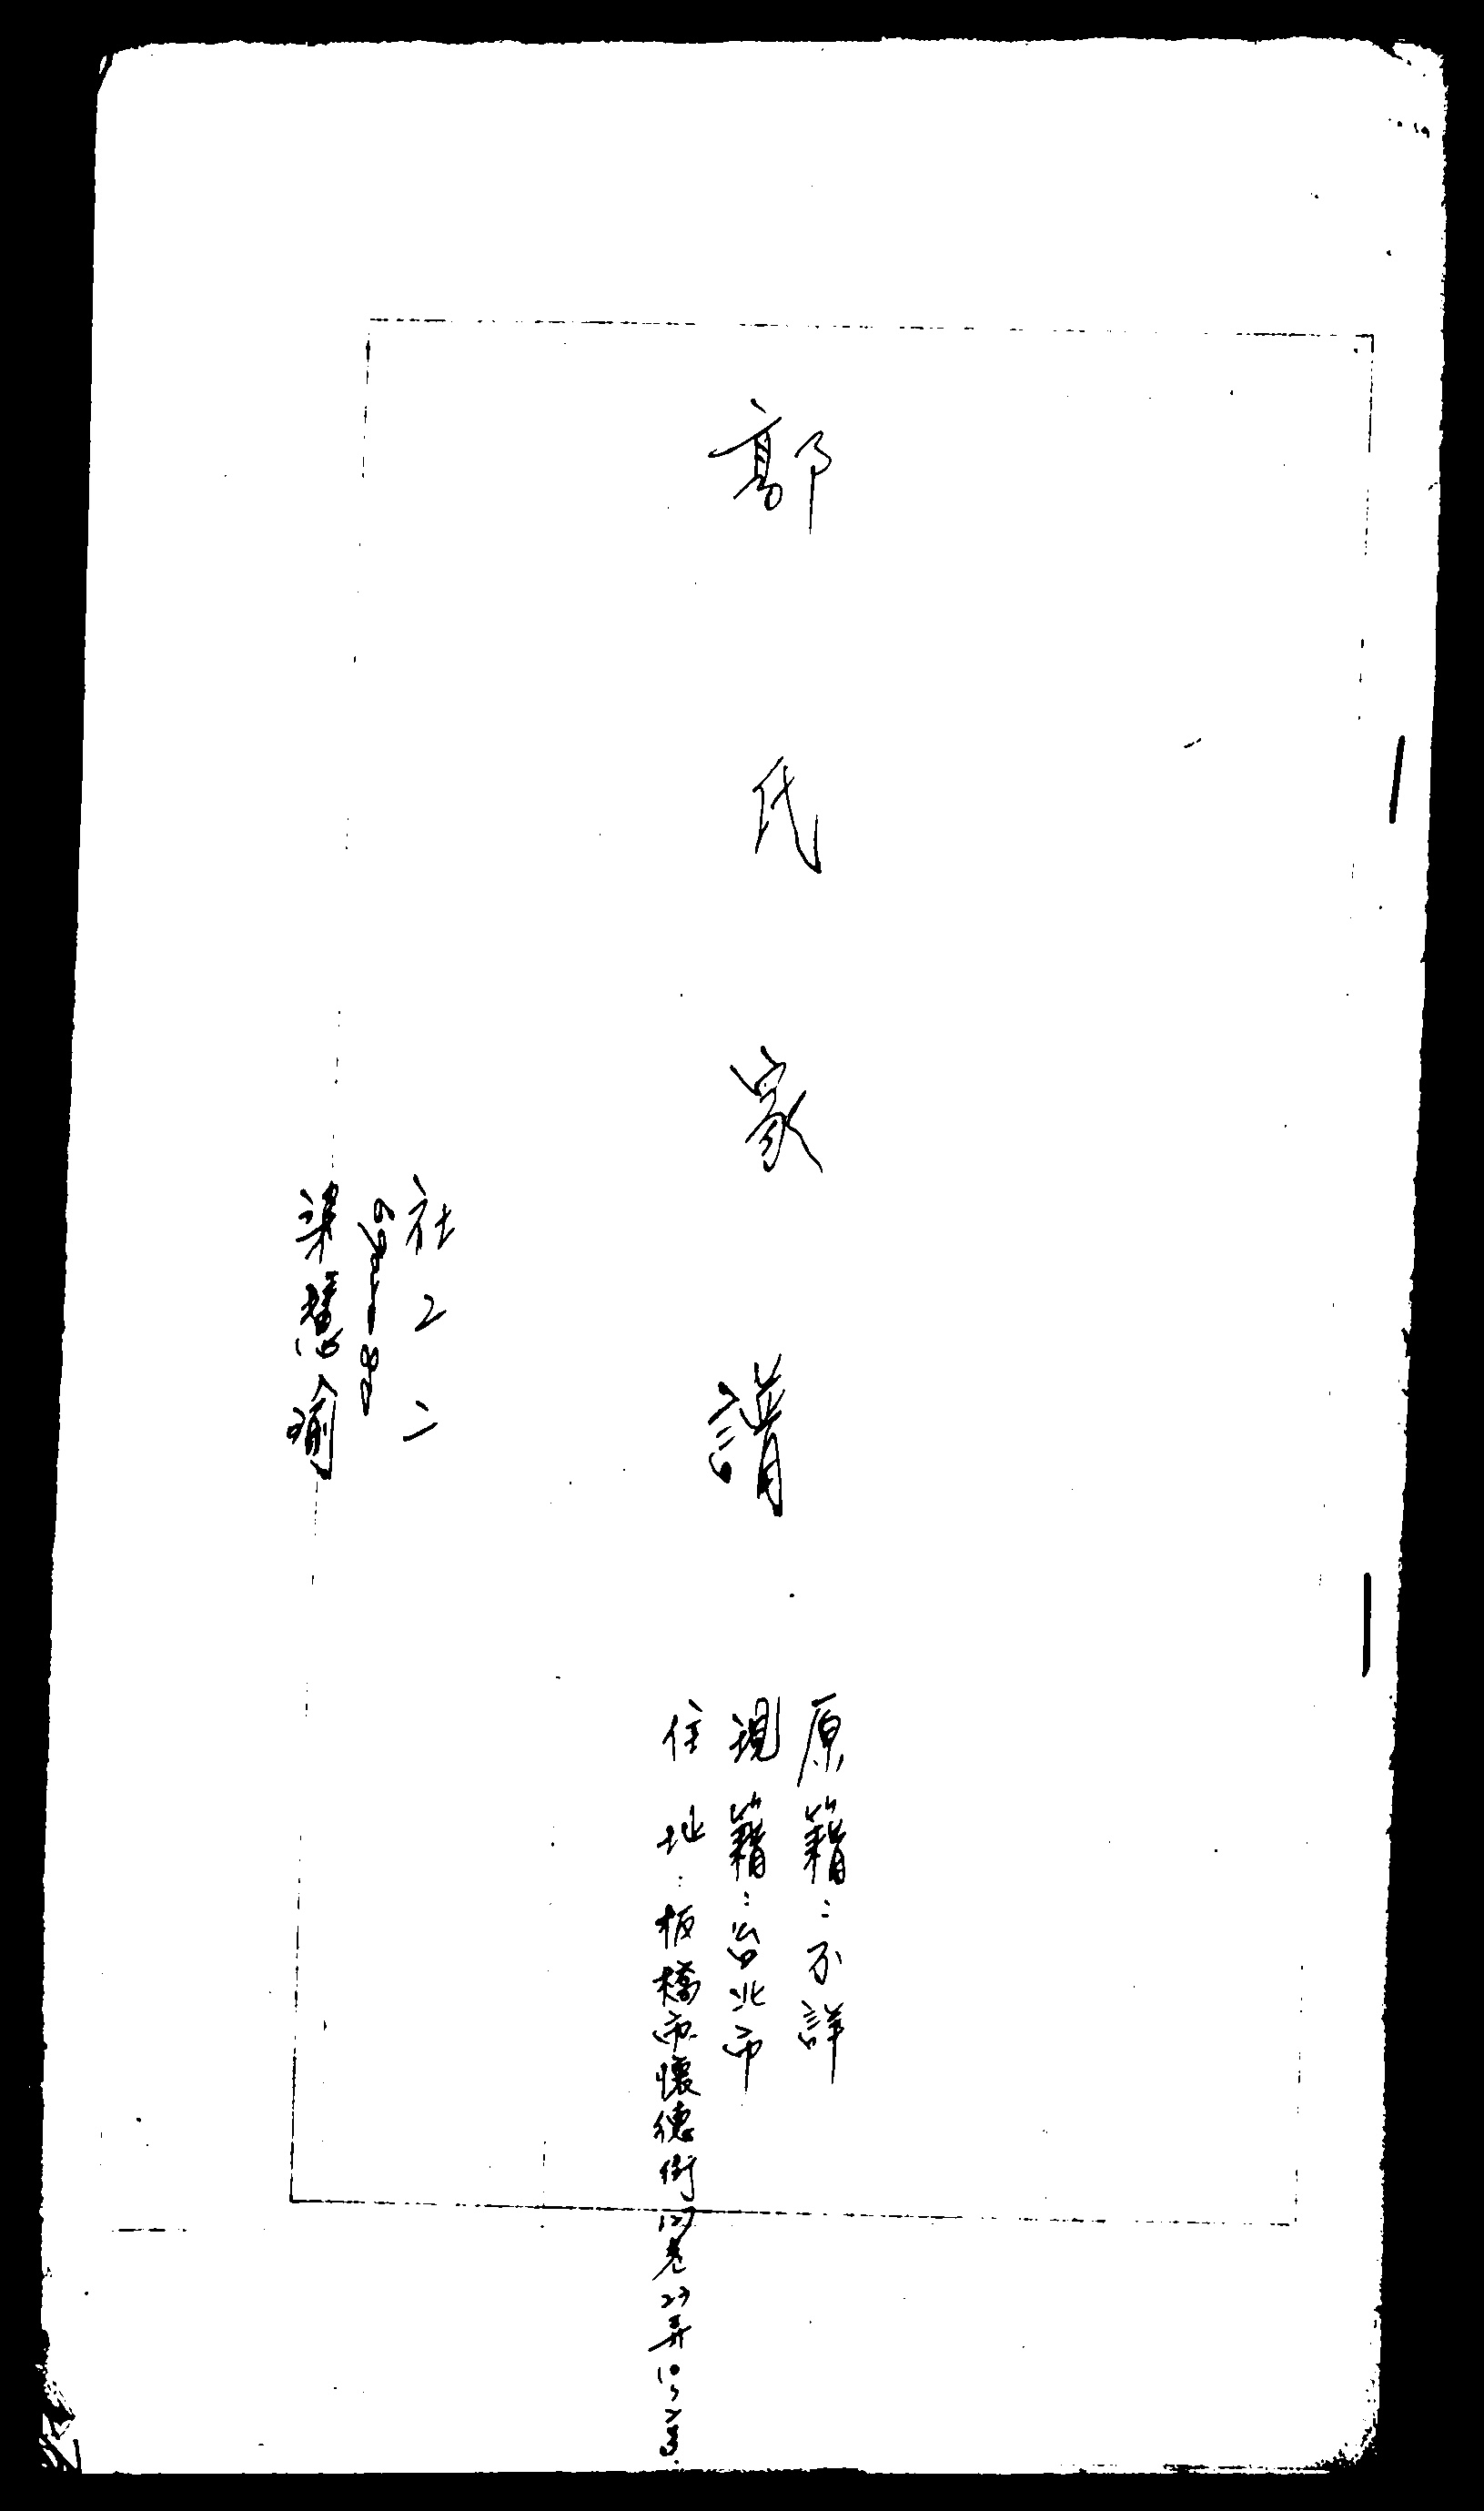 郭氏家譜
原籍：不詳
現籍：台北市
住址：板橋市懷德街127巷23弄10
社工二
梁慧瑜